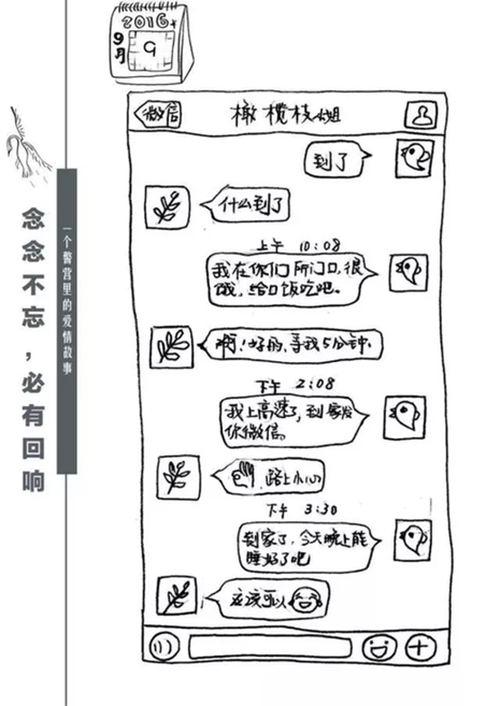 2016年
9月
9
念念不忘，必有回响
一个警营里的爱情故事
微信
橄榄枝小姐
到了
什么到了
上午 10:08
我在你们所门口，很
饿，给口饭吃吧。
啊！好的，等我5分钟。
下午 2:08
我上高速了，到家发
你微信。
路上小心
下午 3:30
到家了，今天晚上能
睡好了吧
应该可以